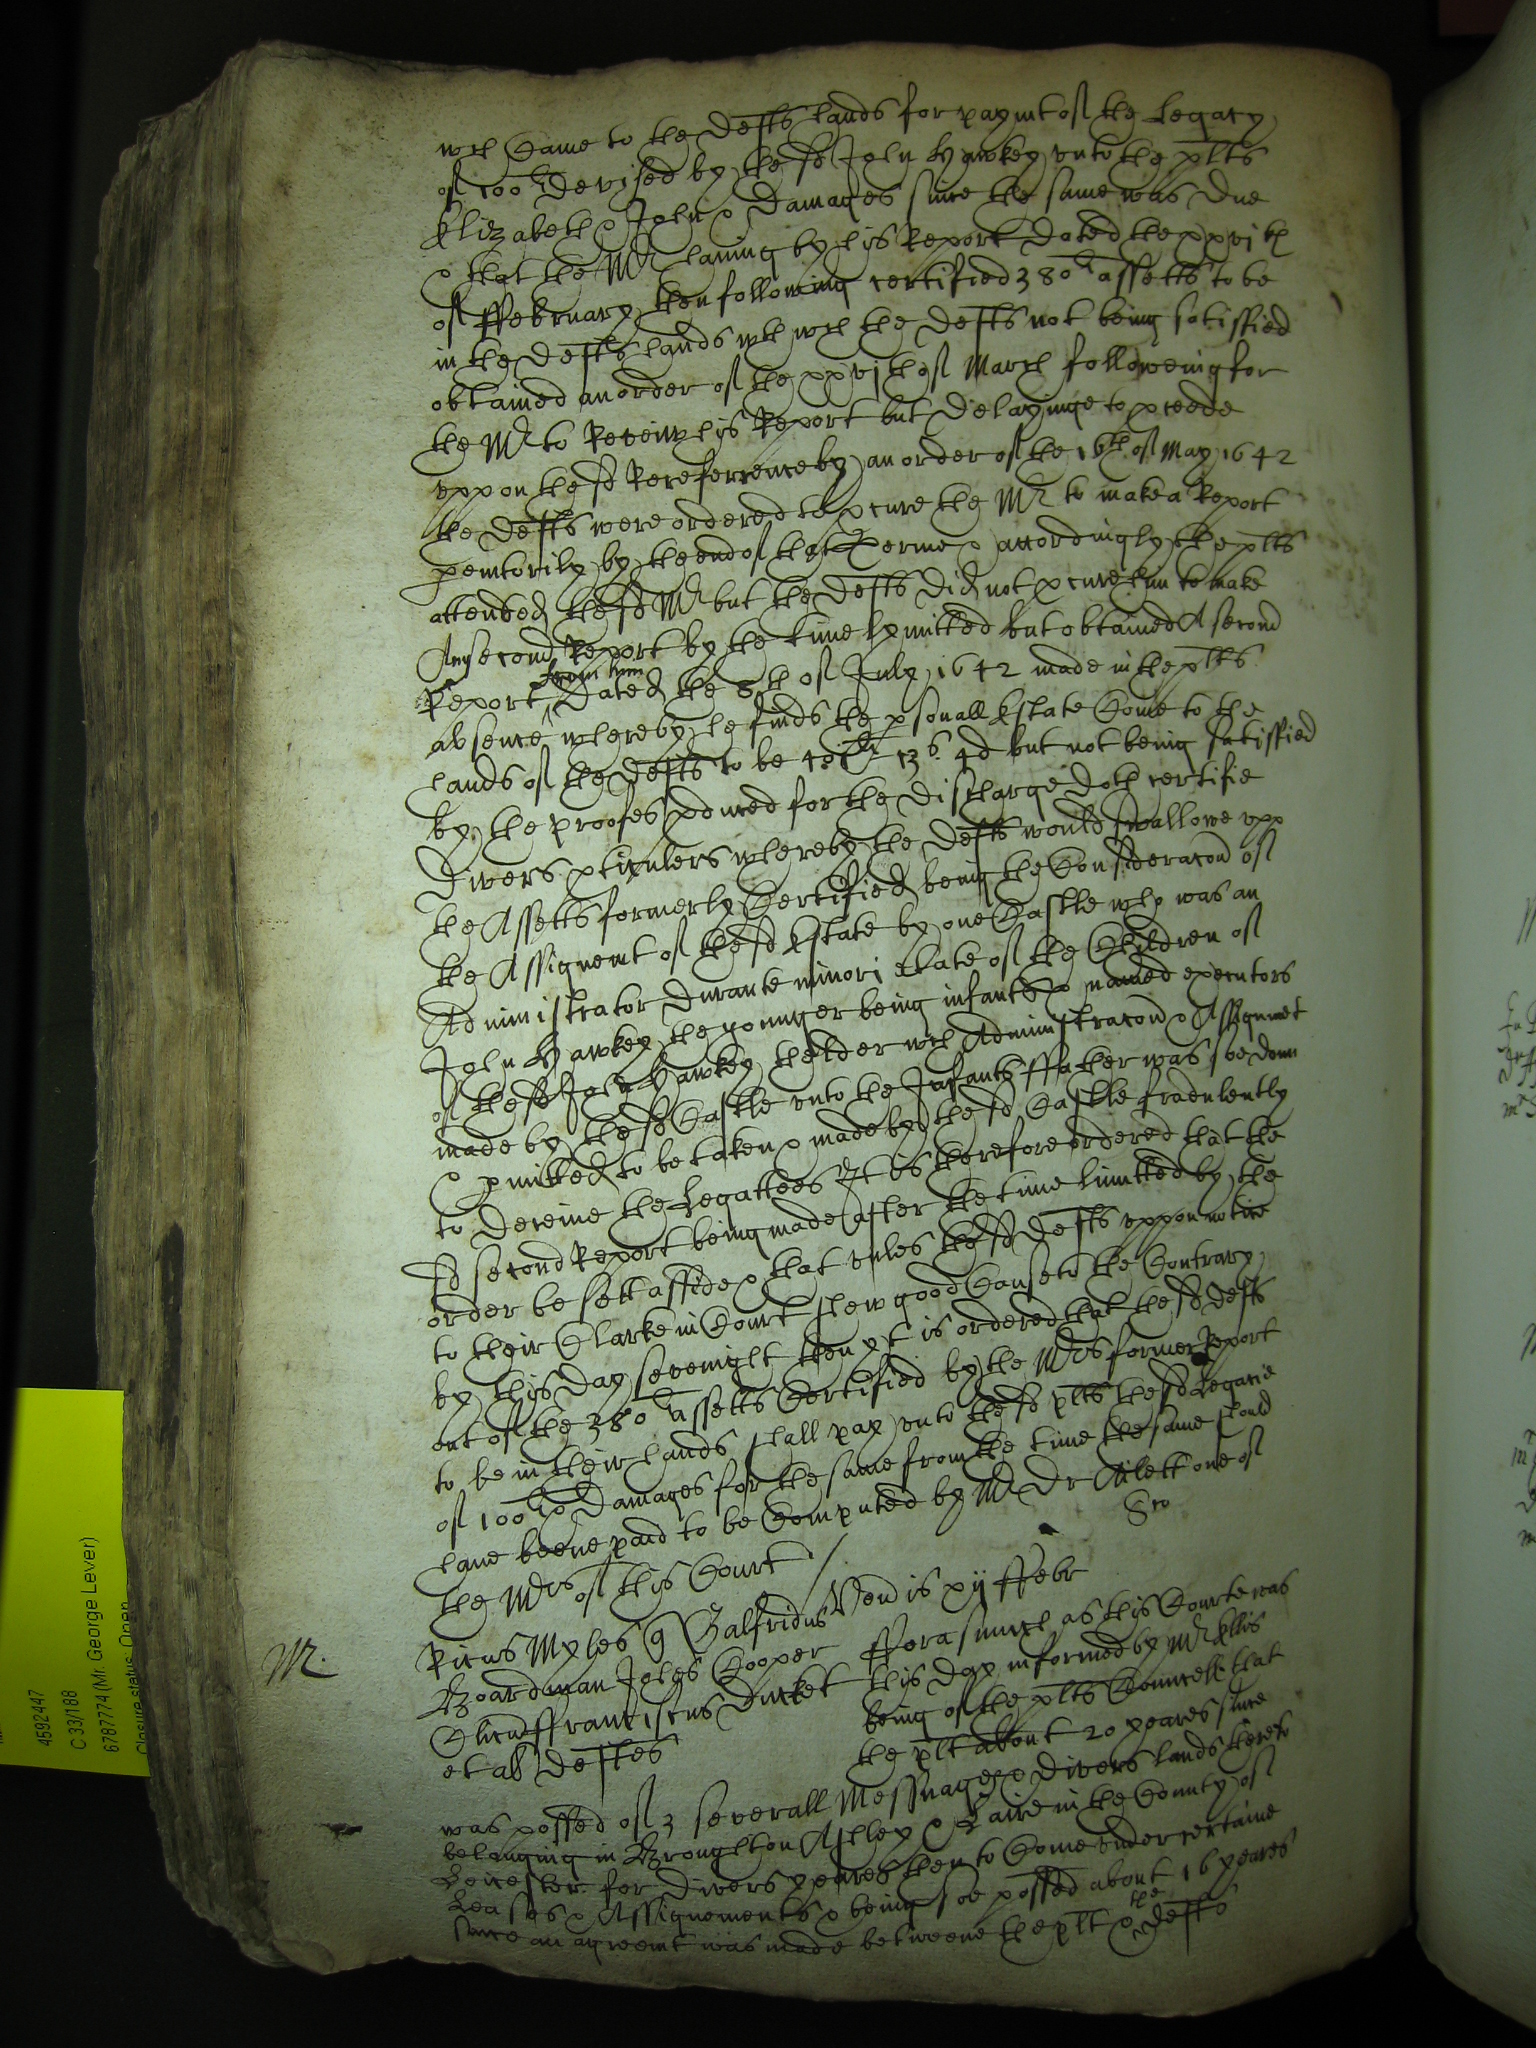 wch Came to the Defts hands for paymt of the Legacy
of 100li Devised by the sd John Hawkey unto the plts
Elizabeth & John & Damages since the same was Due
& that the Mr having by his Report Dated the xxvjth
of ffebruary then following certified 380li assetts to be
in the Defts hands wth wch the Defts not being satisfied
obtained an order of the xxvjth of March followeing for
the Mr to Review his Report but Delayinge to pceede
uppon the sd Rereferrence by an order of the 16th of May 1642
the Defts were ordered to pcure the Mr to make a Report
pemtorily by the end of that Terme & accordingly the plts
attended the sd Mr but the Defts Did not pcure him to make
Any second Report by the time lymitted but obtained A second
Report from him Dated the 8th of July 1642 made in the plts
absence whereby he finds the psonall Estate Come to the
hands of the Defts to be li 13s 4d but not being satisfied
by the proofes pduced for the Discharge Doth certifie
Divers pticulers whereby the Defts would swallowe upp
the Assetts formerly Certified being the Consideracon of
the Assignemt of the sd Estate by one Castle who was an
Administrator Durante minori etate of the Children of
John Hawkey the younger being infants & named executors
of the sd John Hawkey thelder wch Administracon & Assignmet
made by the sd Castle unto the Infants ffather was soe donn
& pmitted to be taken & made by the sd Castle fradulently
to Deceive the Legattees It is therefore ordered that the
sd second Report being made after the time limitted by the
order be sett asside & that unles the sd Defts uppon notice
to their Clarke in Court shew good Cause to the Contrary
by this Day sevenight then yt is ordered that the sd Defts
out of the 380li assetts Certified by the Mrs former Report
to be in their hands shall pay unto the sd plts the sd Legacie
of 100li & Damages for the same from the time the same should
have beene paid to be Computed by Mr Dr Ailett one of
the Mrs of this Court
Cro
Venis xij ffebr
M.
Ricus Myles q Galfridus
Boardman Johes Cooper
Clicus ffranciscus Ducket
et al Deftes
fforasmuch as this Courte was
this Day informed by Mr Ellis
being of the plts Councell that
the plt about 20 yeares since
was possed of 3 severall Messuages & Divers lands thereto
belonging in Broughton Astley & in the County of
Leicester for Divers yeares then to Come under certaine
Leases & Assignements & being soe possed about 16 yeares
since an agreemt was made betweene the plt & the Defts
4592447
C 33/188
6787774 (Mr. George Lever)
Closure status: Open